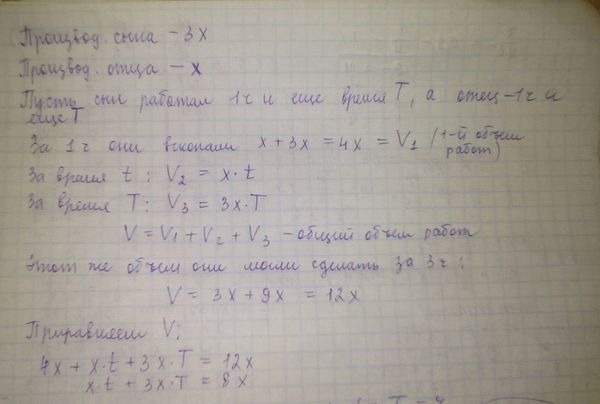 Производ. сына - 3x
Производ. отца - x
Пусть сын работал 1ч и еще время T, а отец - 1ч и
еще T
За 1ч они вскопали x + 3x = 4x = V1 (1-й объем
работ)
За время t: V2 = x·t
За время T: V3 = 3x·T
V = V1 + V2 + V3 - общий объем работ
Этот же объем они могли сделать за 3ч:
V = 3x + 9x = 12x
Приравняем V:
4x + x·t + 3x·T = 12x
x·t + 3x·T = 8x